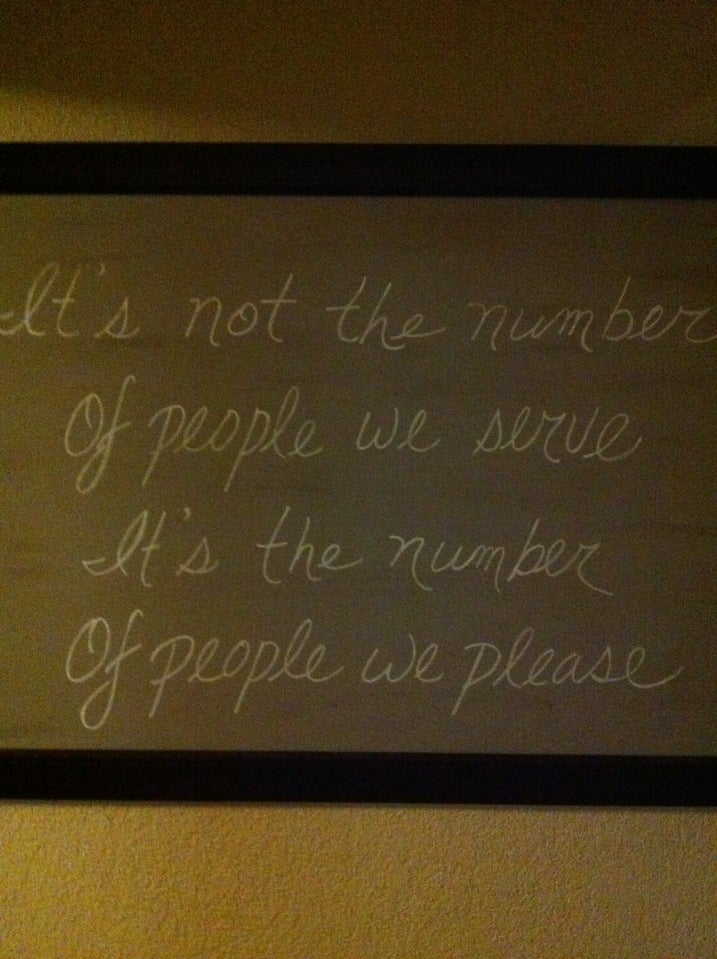 It's not the number
Of people we serve
It's the number
Of people we please